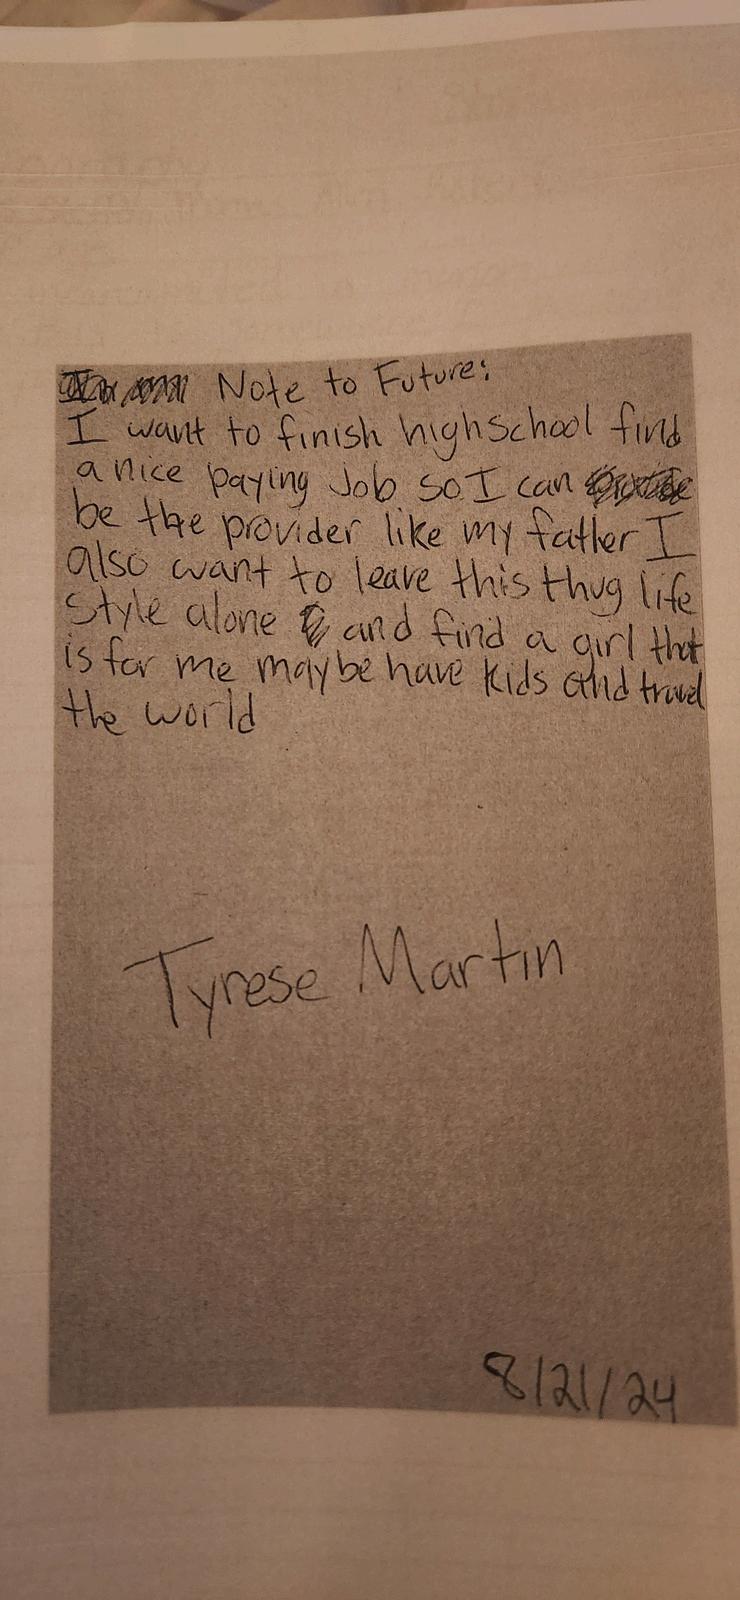 Note to Future:
I want to finish highschool find
a nice paying Job so I can
be the provider like my father I
also want to leave this thug life
style alone and find a girl that
is for me maybe have kids and travel
the world
Tyrese Martin
8/21/24